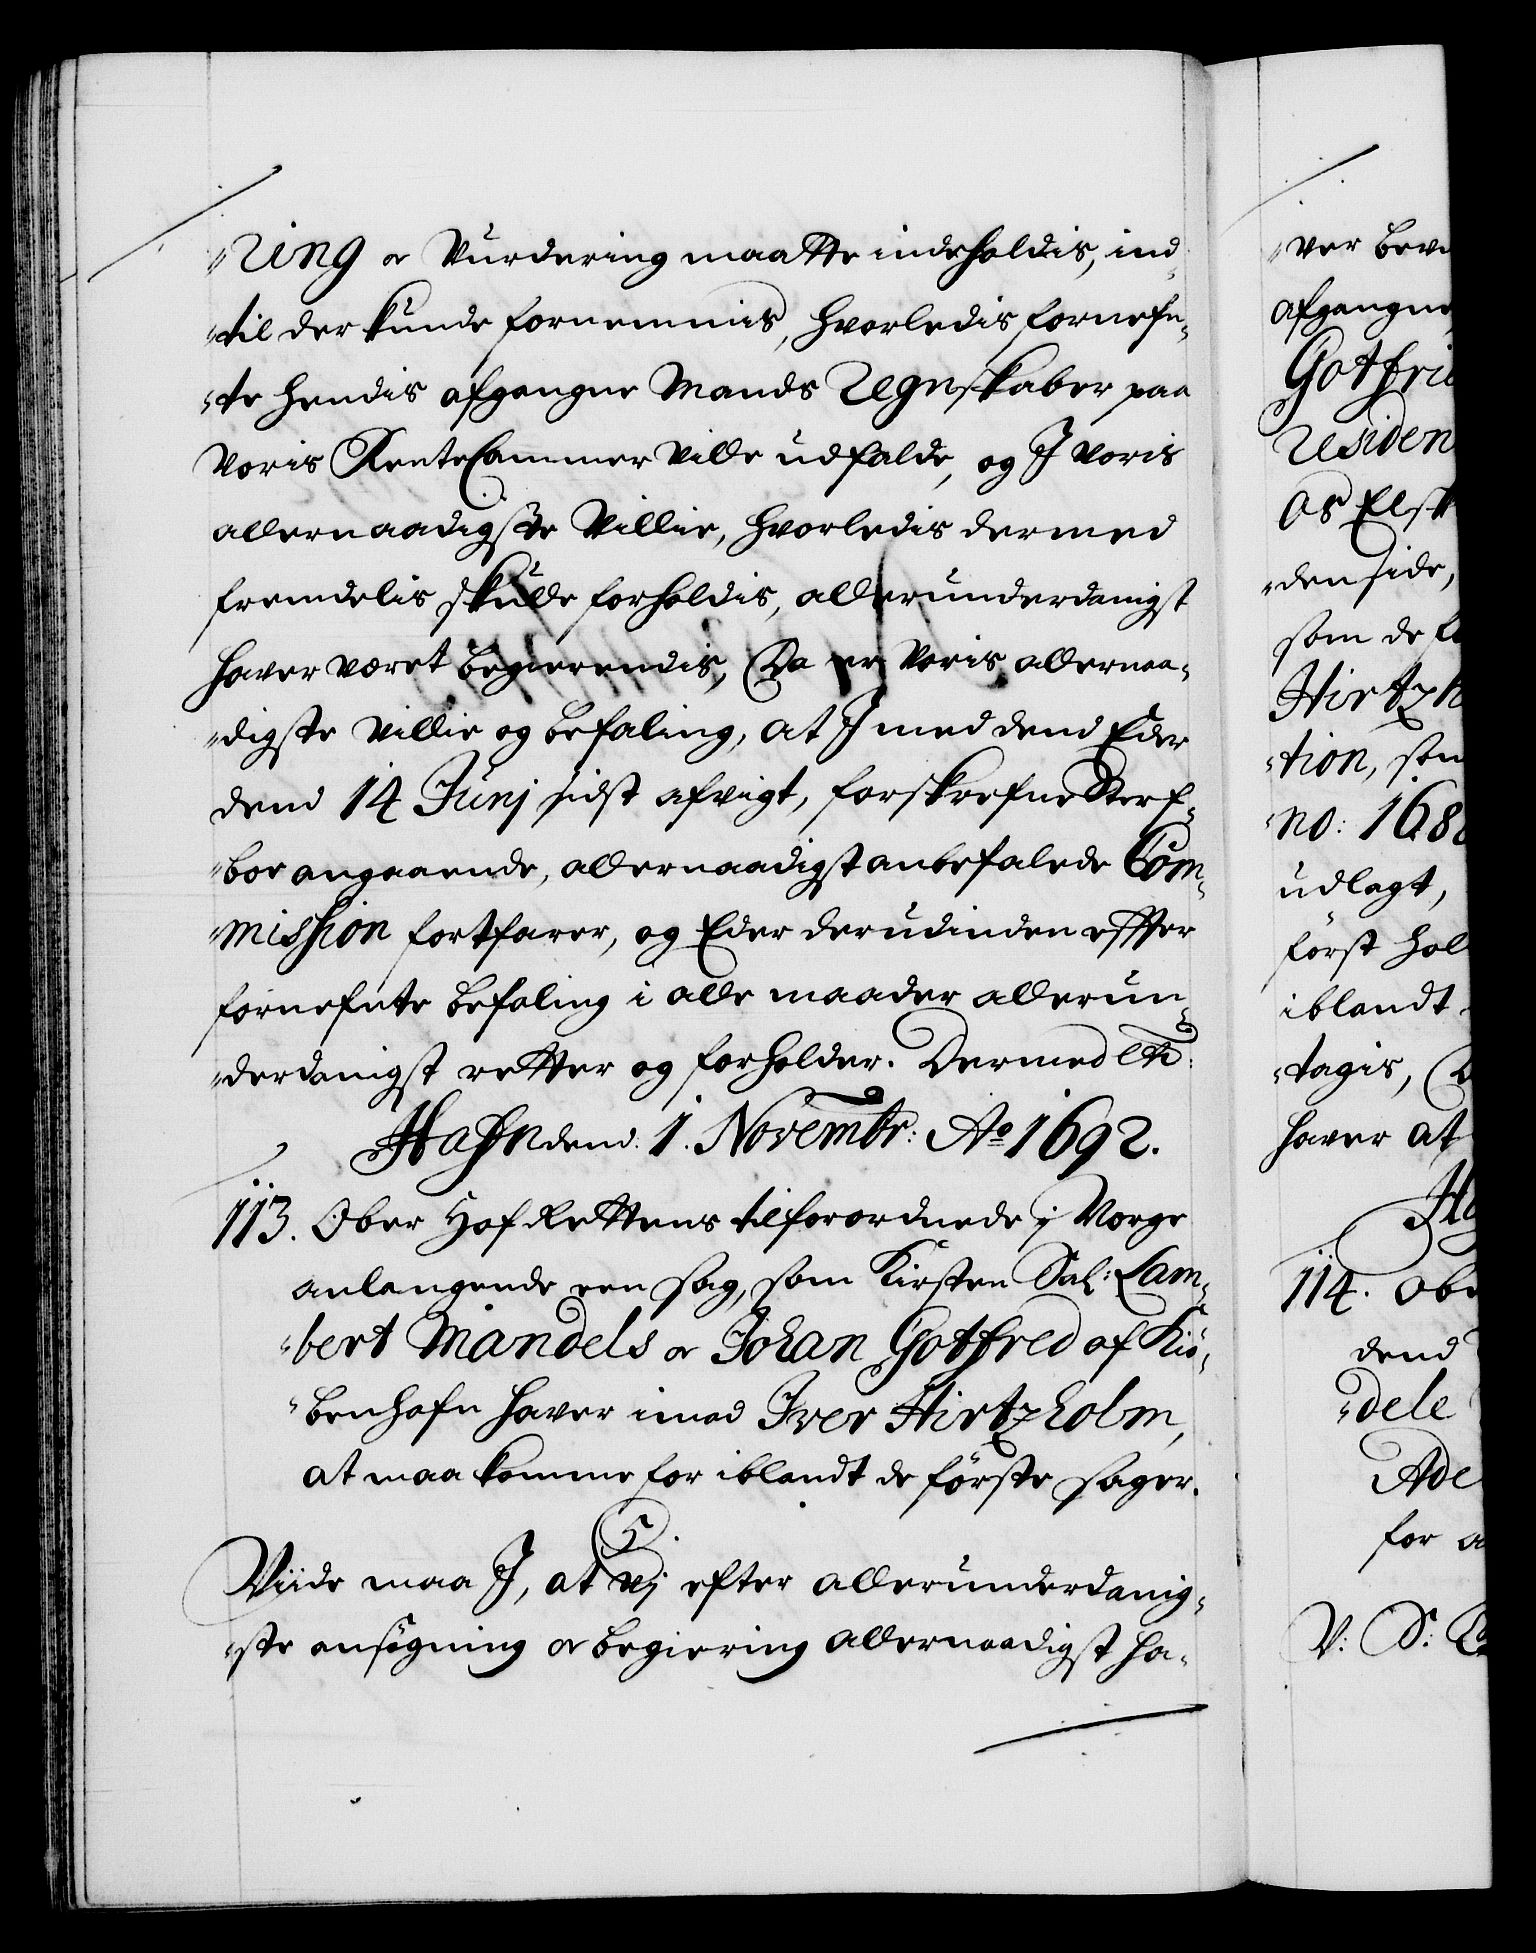 "ring or Vurdering maatte indeholdis, ind-
"til der kunde fornemmis, hvorledis fornefn-
"te hendis afgangne Mands Regnskaber paa
Voris RenteCammer ville udfalde, og J voris
allernaadigste Villie, hvorledis dermed
fremdelis skulle forholdis, allerunderdanigst
haver været begierendis, Da er Voris allernaa-
"digste Villie og befaling, at J med dend Eder
dend 14 Junj sidst afvigt, forskrefne Sterf-
"boe angaaende, allernaadigst anbefalede Com-
"mission fortfarer, og Eder derudinden effter
fornefnte befaling i alle maader allerun-
"derdanigst retter og forholder. Dermed etc:
Hafn dend 1. Novembr: Ao 1692.
113. Ober Hof Rettens tilforordnede i Norge
anlangende een sag, som Kirsten Sal: Lam-
"bert Mandels or Johan Gotfred af Kiö-
"benhafn haver imod Iver Hirtzholm,
at maa komme for iblandt de förste sager.
C5.
Viide maa J, at vj efter allerunderdanig-
"ste ansögning or begiering allernaadigst ha-
"ver bev
afgangne
Gotfri
residen
Os Elsk
"den side,
som de f
Hirtzh
"tion, som
"no: 168
udlagt,
först hol
iblandt
"tagis, D
haver at
H
114. Ob
dend
"dele
Ade
for a
V: S: C